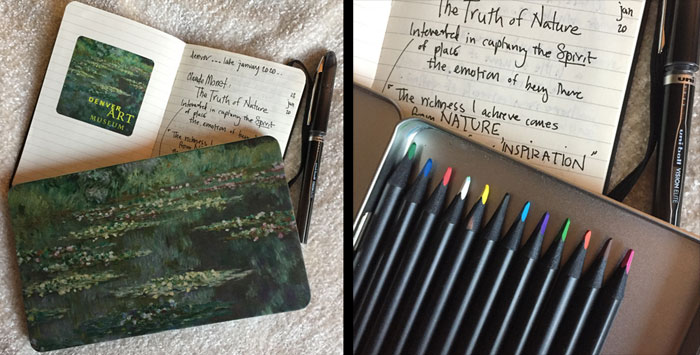 DENVER
ART
MUSEUM
denver... late january 2020..
Claude Monet:
The Truth of Nature
Interested in capturing the Spirit
of place
the emotion of being
"The richness I
from
jan
20
The Truth of Nature
Interested in capturing the Spirit
of place
the emotion of being there
"The richness I achieve comes
from NATURE
INSPIRATION"
jan
20
uni-ball VISION ELITE